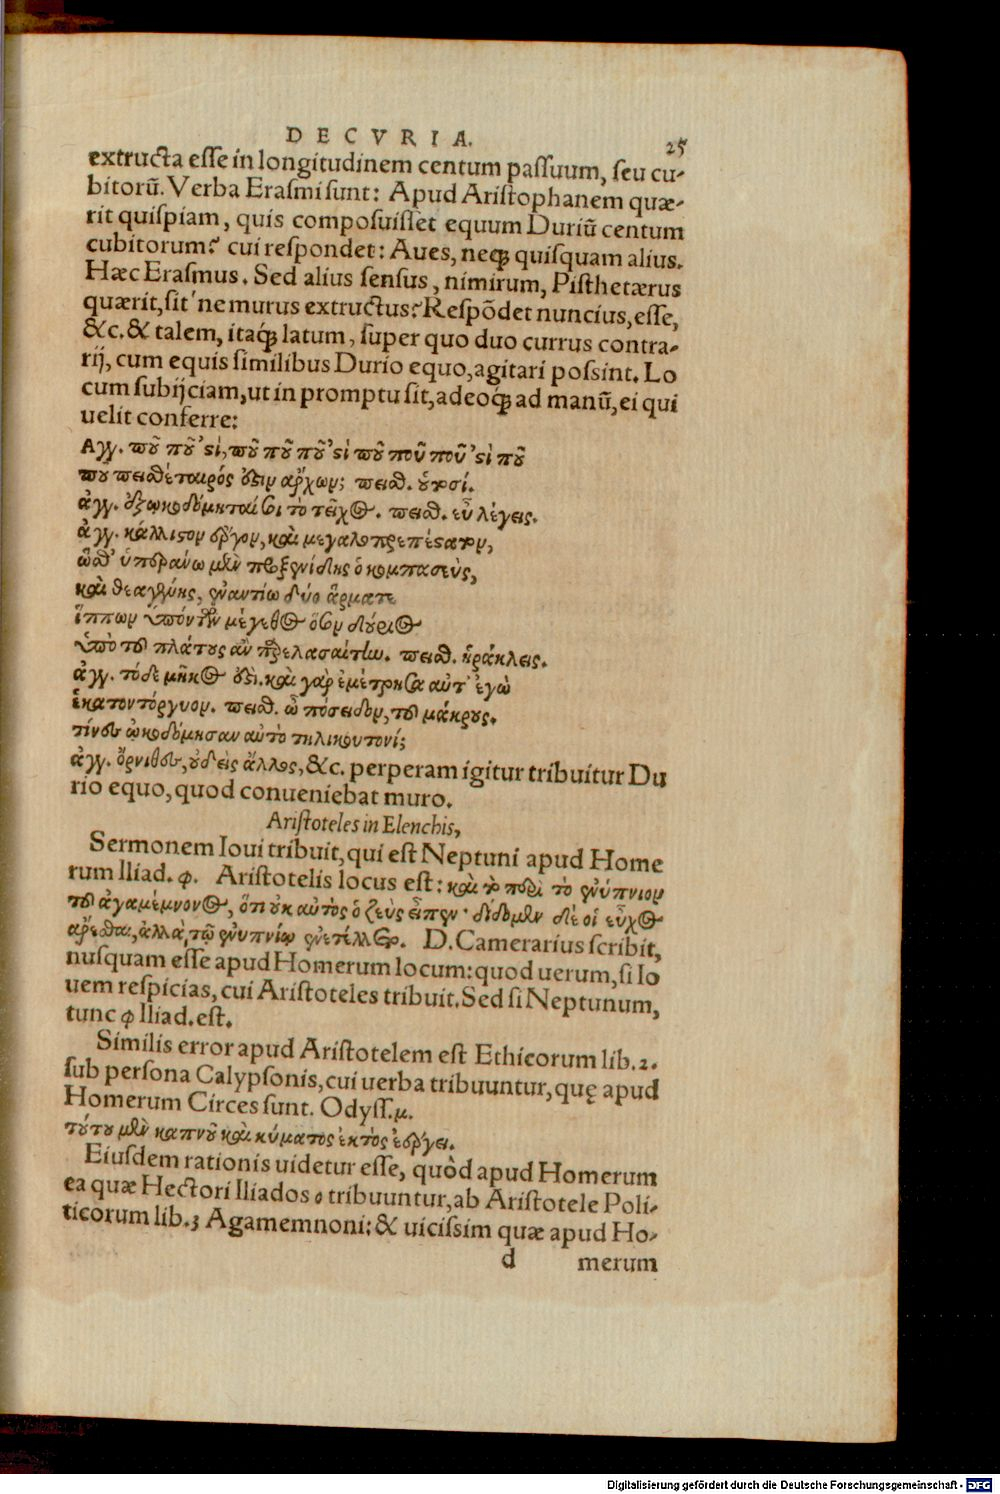 DECVRIA. 25
extructa esse in longitudinem centum passuum, seu cu-
bitorū. Verba Erasmi sunt: Apud Aristophanem quæ-
rit quispiam, quis composuisset equum Duriū centum
cubitorum? cui respondet: Aues, neq; quisquam alius.
Hæc Erasmus. Sed alius sensus, nimirum, Pisthetærus
quærit, sit'ne murus extructus? Respōdet nuncius, esse,
&c. & talem, itaq; latum, super quo duo currus contra-
rij, cum equis similibus Durio equo, agitari possint. Lo
cum subijciam, ut in promptu sit, adeoq; ad manū, ei qui
uelit conferre:
Αγγ. ποῦ ποῦ 'ςὶ, ποῦ ποῦ ποῦ 'ςὶ ποῦ ποῦ ποῦ 'ςὶ ποῦ
που πειθέταιρός ὅςιν ἄρχων; πειθ. οὑτοσί.
ἀγγ. ἐξῳκοδόμηταί σοι τὸ τεῖχος. πειθ. εὖ λέγεις.
ἀγγ. κάλλιςον ἔργον, καὶ μεγαλοπρεπέςατον,
ὥσθ' ὑπεράνω μὲν προξενίδης ὁ κομπασεὺς,
καὶ θεαγένης, ἐναντίω δύο ἅρματε
ἵππων ὑπόντων μέγεθος ὅσον δούριος
ὑπὸ τοῦ πλάτους ἂν παρελασαίτην. πειθ. ἡράκλεις.
ἀγγ. τὸ δὲ μῆκος ὅςὶ. καὶ γὰρ ἐμέτρησα αὐτ' ἐγὼ
ἑκατοντόργυον. πειθ. ὦ πόσειδον, τοῦ μάκρους.
τίνες ᾠκοδόμησαν αὐτὸ τηλικουτονί;
ἀγγ. ὄρνιθες, οὐδεὶς ἄλλος, &c. perperam igitur tribuitur Du
rio equo, quod conueniebat muro.
Aristoteles in Elenchis,
Sermonem Ioui tribuit, qui est Neptuni apud Home
rum Iliad. φ. Aristotelis locus est: καὶ τὸ περὶ τὸ ἐνύπνιον
τοῦ ἀγαμέμνονος, ὅτι οὐκ αὐτὸς ὁ ζεὺς εἶπεν· δίδομεν δέ οἱ εὖχος
ἀρέσθαι, ἀλλὰ τῷ ἐνυπνίῳ ἐνετέλλετο. D. Camerarius scribit,
nusquam esse apud Homerum locum: quod uerum, si Io
uem respicias, cui Aristoteles tribuit. Sed si Neptunum,
tunc φ Iliad. est.
Similis error apud Aristotelem est Ethicorum lib. 2.
sub persona Calypsonis, cui uerba tribuuntur, quę apud
Homerum Circes sunt. Odyss. μ.
τούτου μὲν καπνοῦ καὶ κύματος ἐκτὸς ἔεργει.
Eiusdem rationis uidetur esse, quòd apud Homerum
ea quæ Hectori Iliados ο tribuuntur, ab Aristotele Poli-
ticorum lib. 3 Agamemnoni: & uicissim quæ apud Ho-
d merum
Digitalisierung gefördert durch die Deutsche Forschungsgemeinschaft - DFG